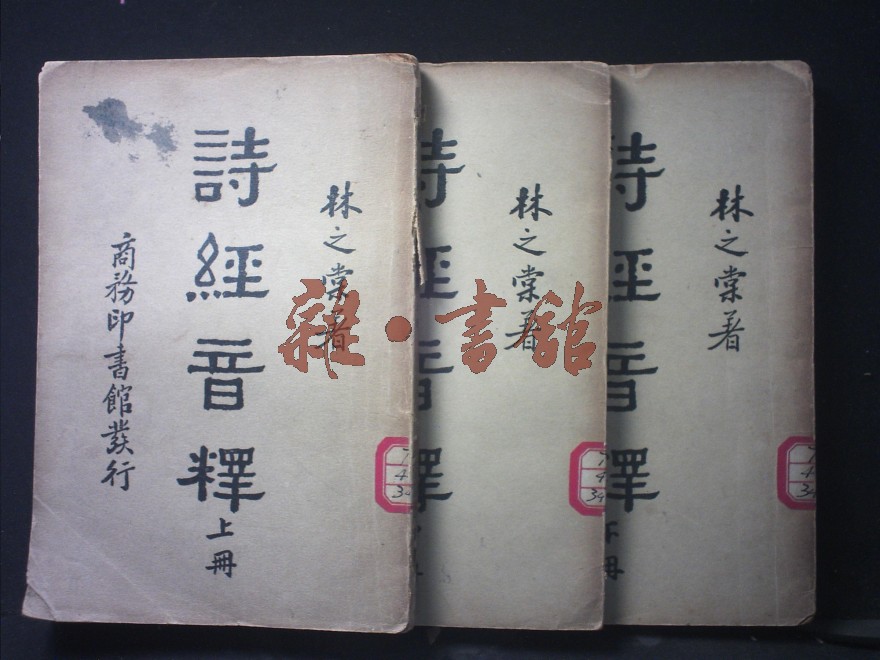 林之棠著
詩經音釋
上冊
商務印書館發行
林之棠著
詩經音釋
林之棠著
詩經音釋
下冊
雜·書館